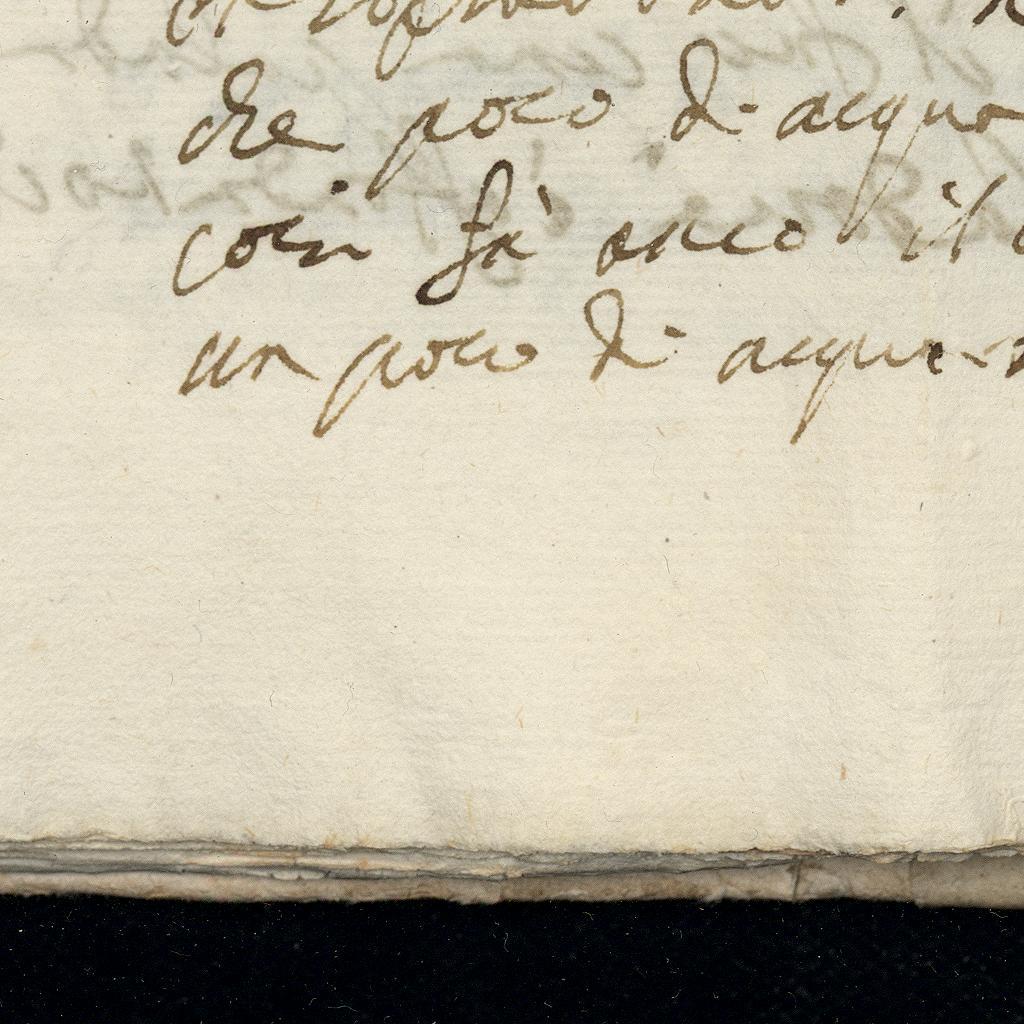 che poco di acqua
così fà anco il
un poco di acqua